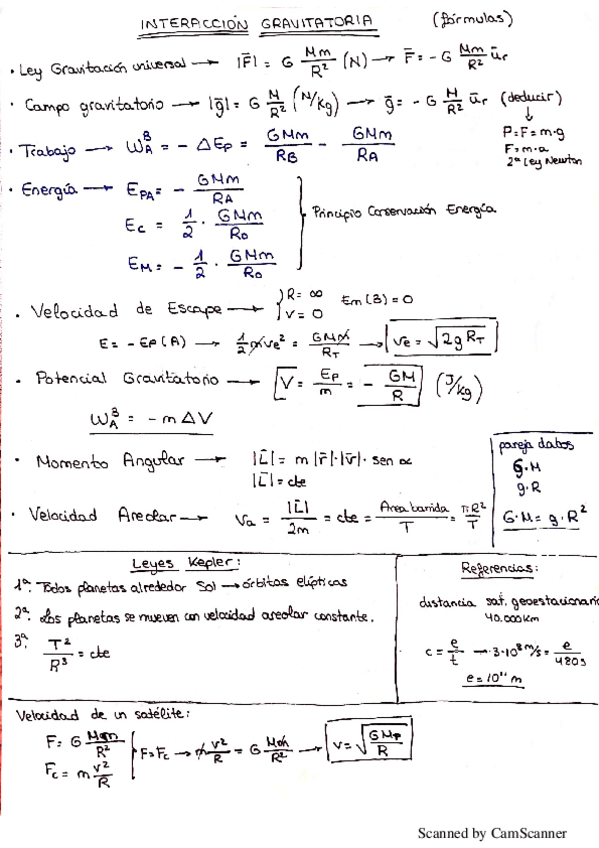 INTERACCIÓN GRAVITATORIA (fórmulas)
· Ley Gravitación universal → |F̄| = G Mm/R² (N) → F̄ = - G Mm/R² ūr
· Campo gravitatorio → |ḡ| = G M/R² (N/kg) → ḡ = - G M/R² ūr (deducir)
↓
P=F=m·g
F=m·a
2ª Ley Newton
· Trabajo → W_A^B = - ΔEp = GMm/R_B - GMm/R_A
· Energía → E_PA = - GMm/R_A
E_C = 1/2 · GMm/R_o
E_M = - 1/2 · GMm/R_o
} Principio Conservación Energía
· Velocidad de Escape → { R = ∞ V = 0 Em(B) = 0
E = - Ep(A) → 1/2 m ve² = GMm/R_T → ve = √2g R_T
· Potencial Gravitatorio → V = Ep/m = - GM/R (J/kg)
W_A^B = - m ΔV
· Momento Angular → |L̄| = m |r̄|·|v̄|· sen α
|L̄| = cte
pareja datos
G·M
g·R
G·M = g·R²
· Velocidad Areolar → Va = |L̄|/2m = cte = Area barrida/T = π·R²/T
Leyes Kepler:
1ª: Todos planetas alrededor Sol → órbitas elípticas
2ª: Los planetas se mueven con velocidad areolar constante.
3ª: T²/R³ = cte
Referencias:
distancia sat. geoestacionario
40.000 km
c = e/t → 3·10⁸ m/s = e/480s
e = 10¹¹ m
Velocidad de un satélite:
F = G Mm/R²
Fc = m v²/R
} F = Fc → m v²/R = G Mm/R² → v = √G Mp/R
Scanned by CamScanner